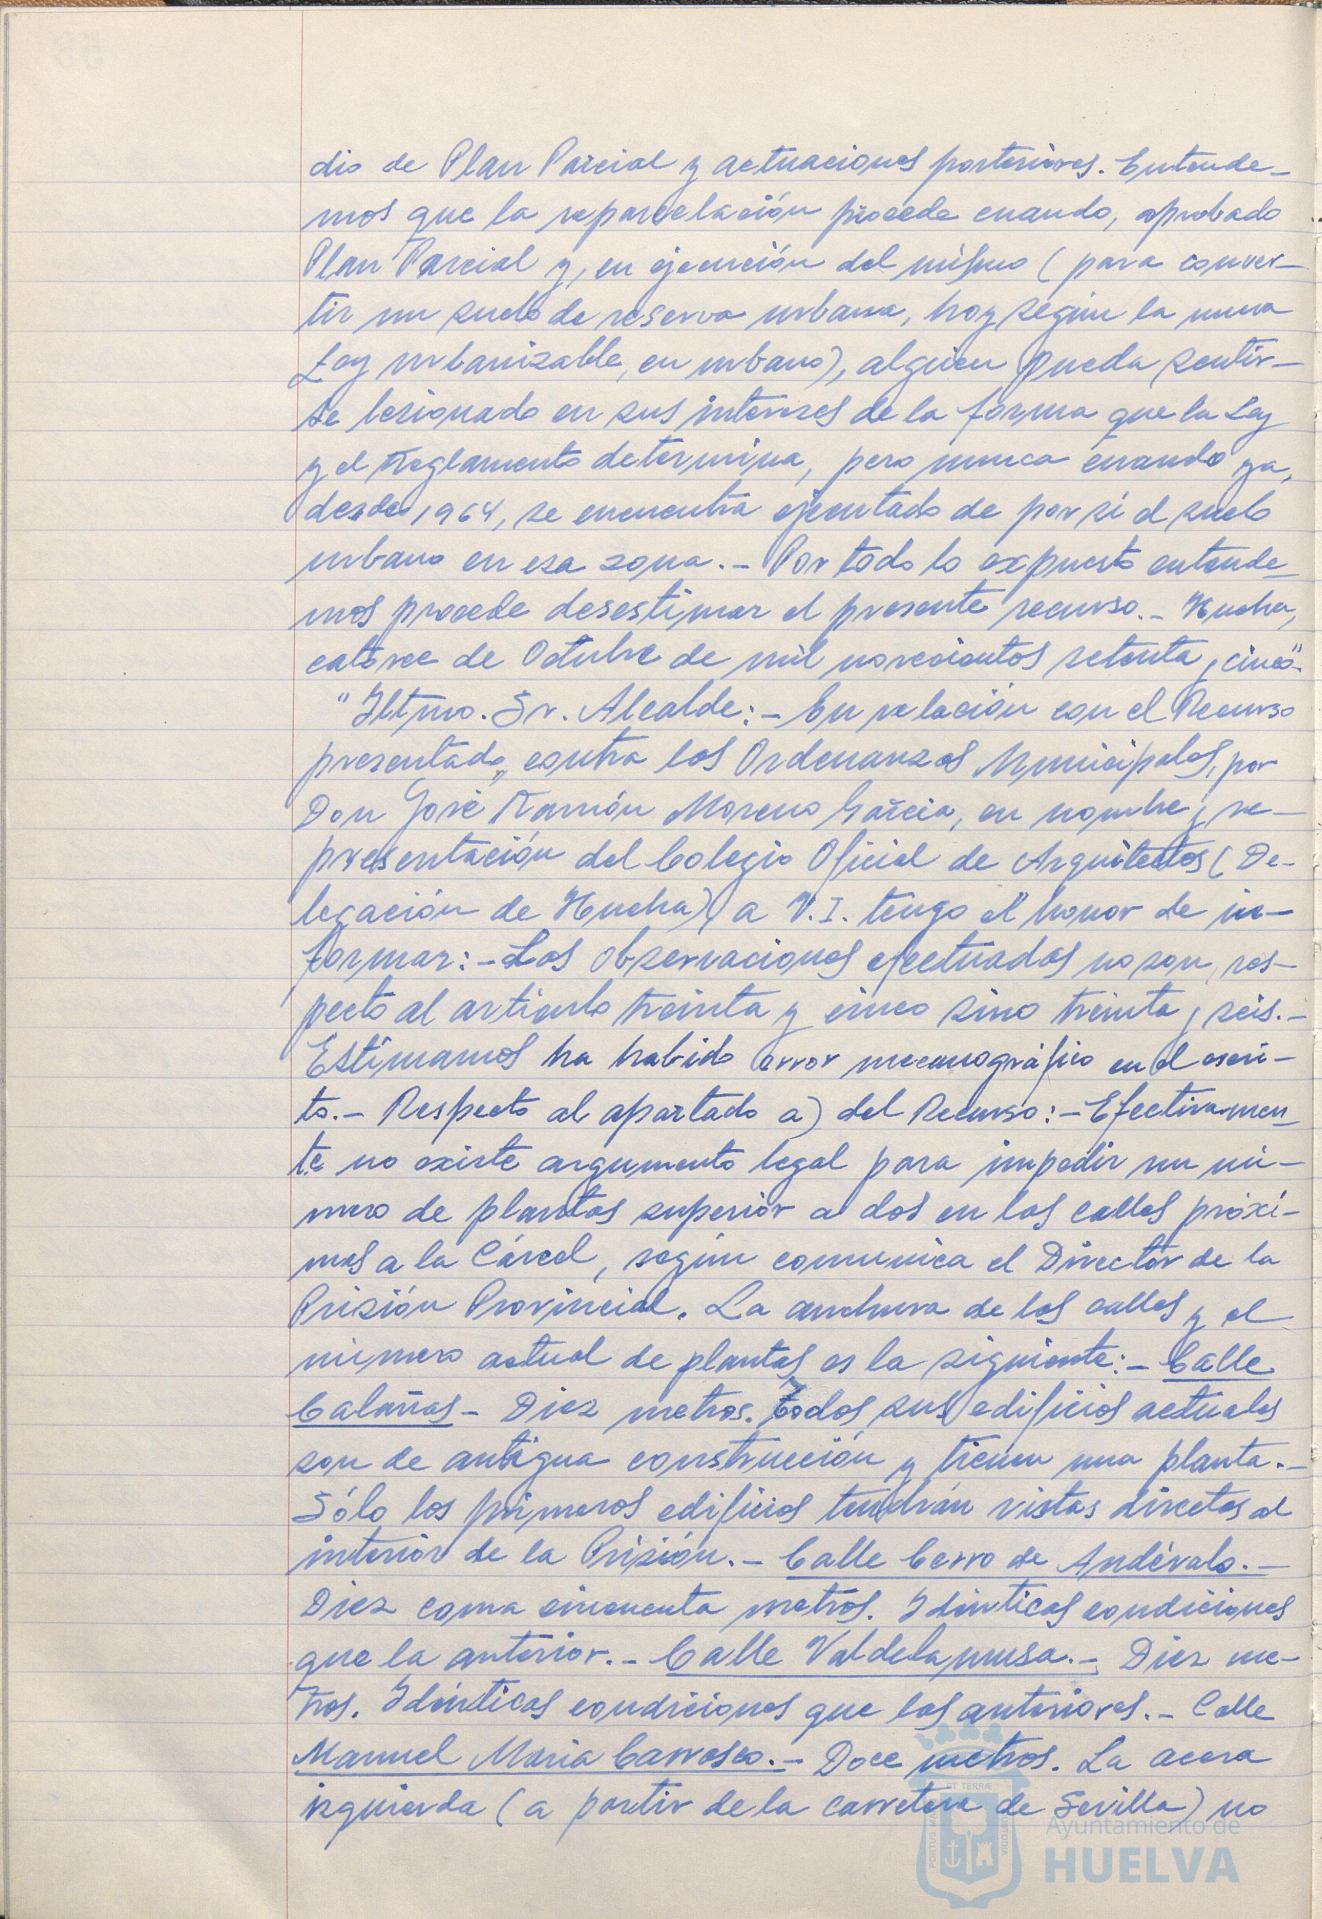 dio de Plan Parcial y actuaciones posteriores. Entende-
mos que la reparcelación procede cuando, aprobado
Plan Parcial y, en ejecución del mismo (para conver-
tir un suelo de reserva urbana, hoy según la nueva
Ley urbanizable, en urbano), alguien pueda sentir-
se lesionado en sus intereses de la forma que la Ley
y el Reglamento determina, pero nunca cuando ya,
desde 1964, se encuentra ejecutado de por sí el suelo
urbano en esa zona.- Por todo lo expuesto entende-
mos procede desestimar el presente recurso.- Huelva,
catorce de Octubre de mil novecientos setenta y cinco".
"Iltmo. Sr. Alcalde:- En relación con el Recurso
presentado, contra las Ordenanzas Municipales, por
Don José Ramón Moreno García, en nombre y re-
presentación del Colegio Oficial de Arquitectos (De-
legación de Huelva), a V.I. tengo el honor de in-
formar:- Las observaciones efectuadas no son res-
pecto al artículo treinta y cinco sino treinta y seis.-
Estimamos ha habido error mecanográfico en el escri-
to.- Respecto al apartado a) del Recurso:- Efectivamen-
te no existe argumento legal para impedir un nú-
mero de plantas superior a dos en las calles próxi-
mas a la Cárcel, según comunica el Director de la
Prisión Provincial. La anchura de las calles y el
número actual de plantas es la siguiente:- Calle
Calañas- Diez metros. Todos sus edificios actuales
son de antigua construcción y tienen una planta.-
Sólo los primeros edificios tendrán vistas directas al
interior de la Prisión.- Calle Cerro de Andévalo.-
Diez coma cincuenta metros. Idénticas condiciones
que la anterior.- Calle Valdelamusa.- Diez me-
tros. Idénticas condiciones que las anteriores.- Calle
Manuel María Carrasco.- Doce metros. La acera
izquierda (a partir de la carretera de Sevilla) no
Ayuntamiento de
HUELVA